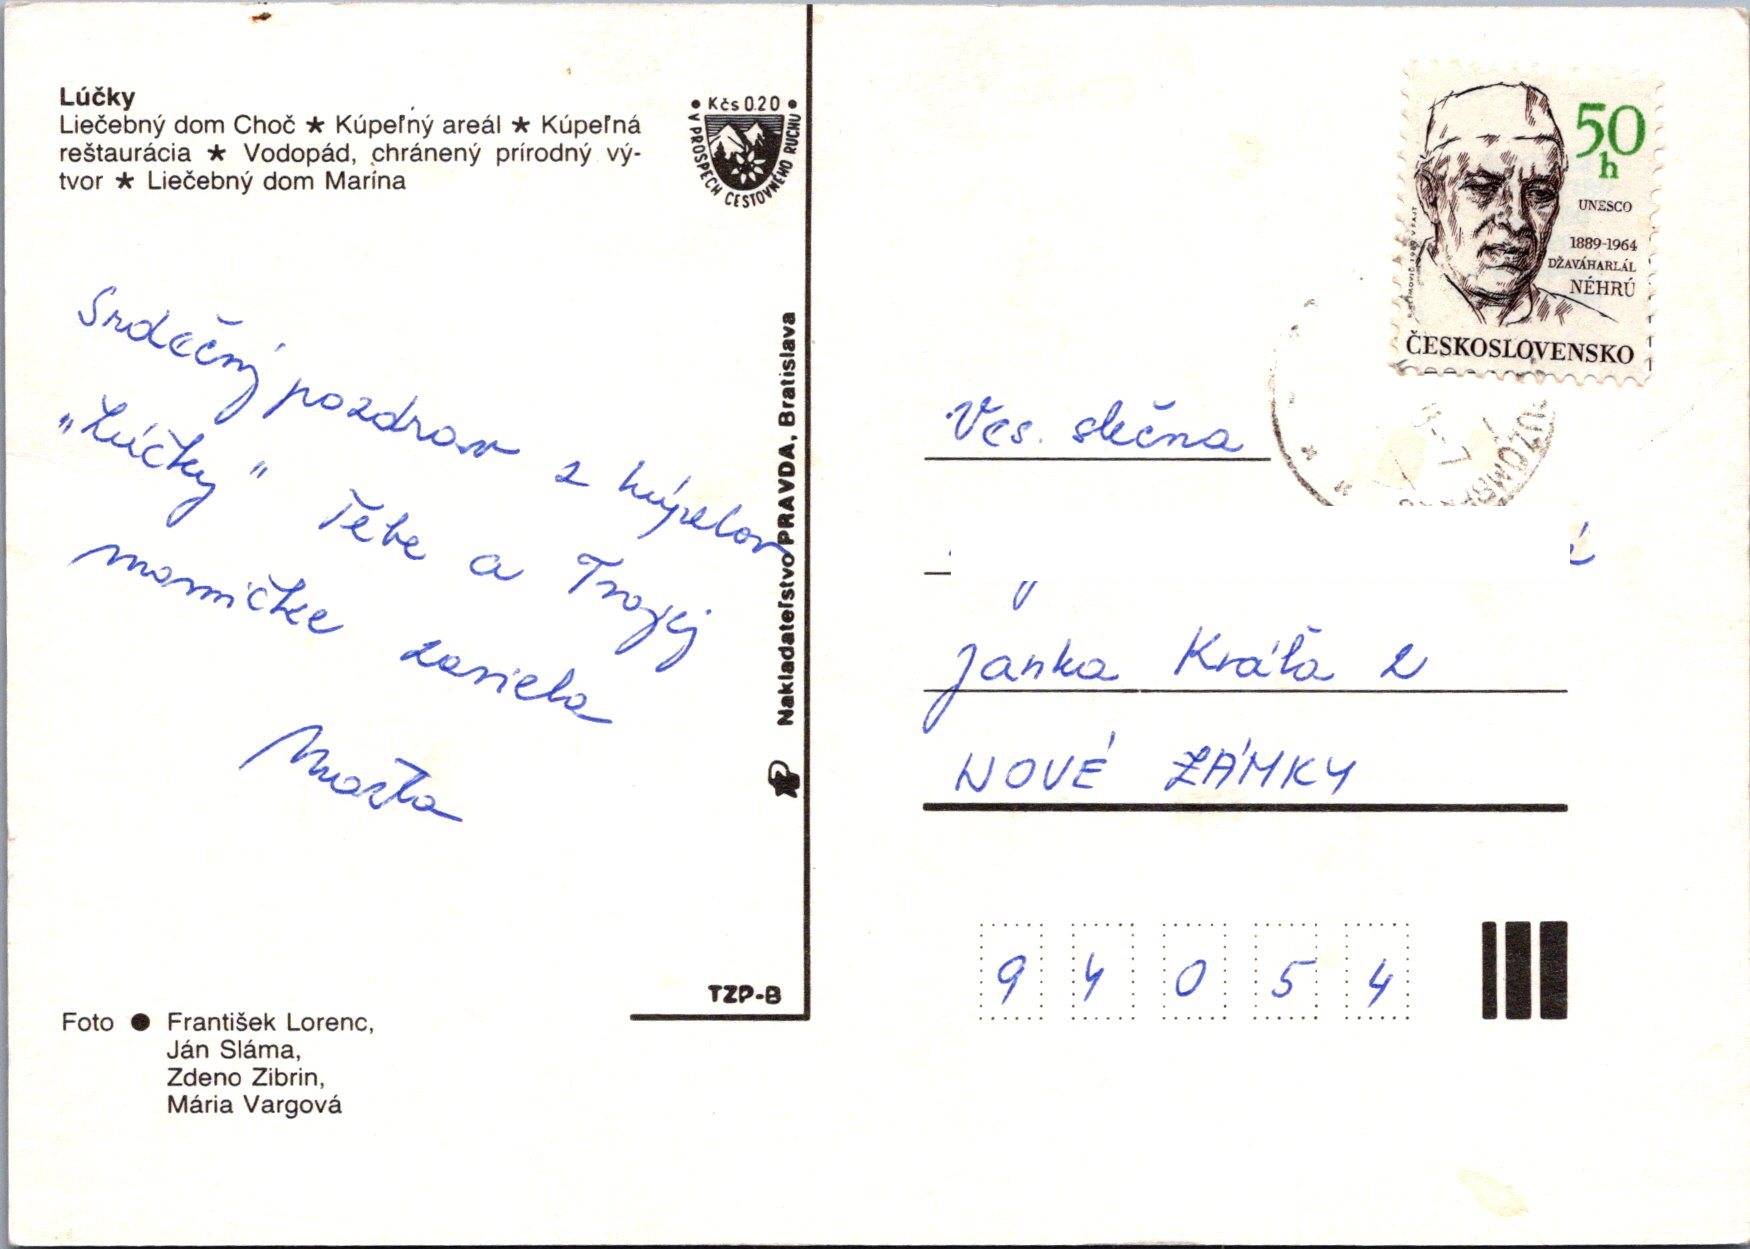 Lúčky
Liečebný dom Choč ★ Kúpeľný areál ★ Kúpeľná
reštaurácia ★ Vodopád, chránený prírodný vý-
tvor ★ Liečebný dom Marína
• Kčs 0.20 •
V PROSPECH CESTOVNÉHO RUCHU
Srdečný pozdrav z kúpelov
"Lúčky" Tebe a Tvojej
mamičke zasiela
Marta
Nakladateľstvo PRAVDA, Bratislava
TZP-B
Foto ● František Lorenc,
Ján Sláma,
Zdeno Zibrin,
Mária Vargová
50
h
UNESCO
1889-1964
DŽAVÁHARLÁL
NÉHRÚ
ČESKOSLOVENSKO
Ves. slečna
Janka Kráľa 2
NOVÉ ZÁMKY
94054